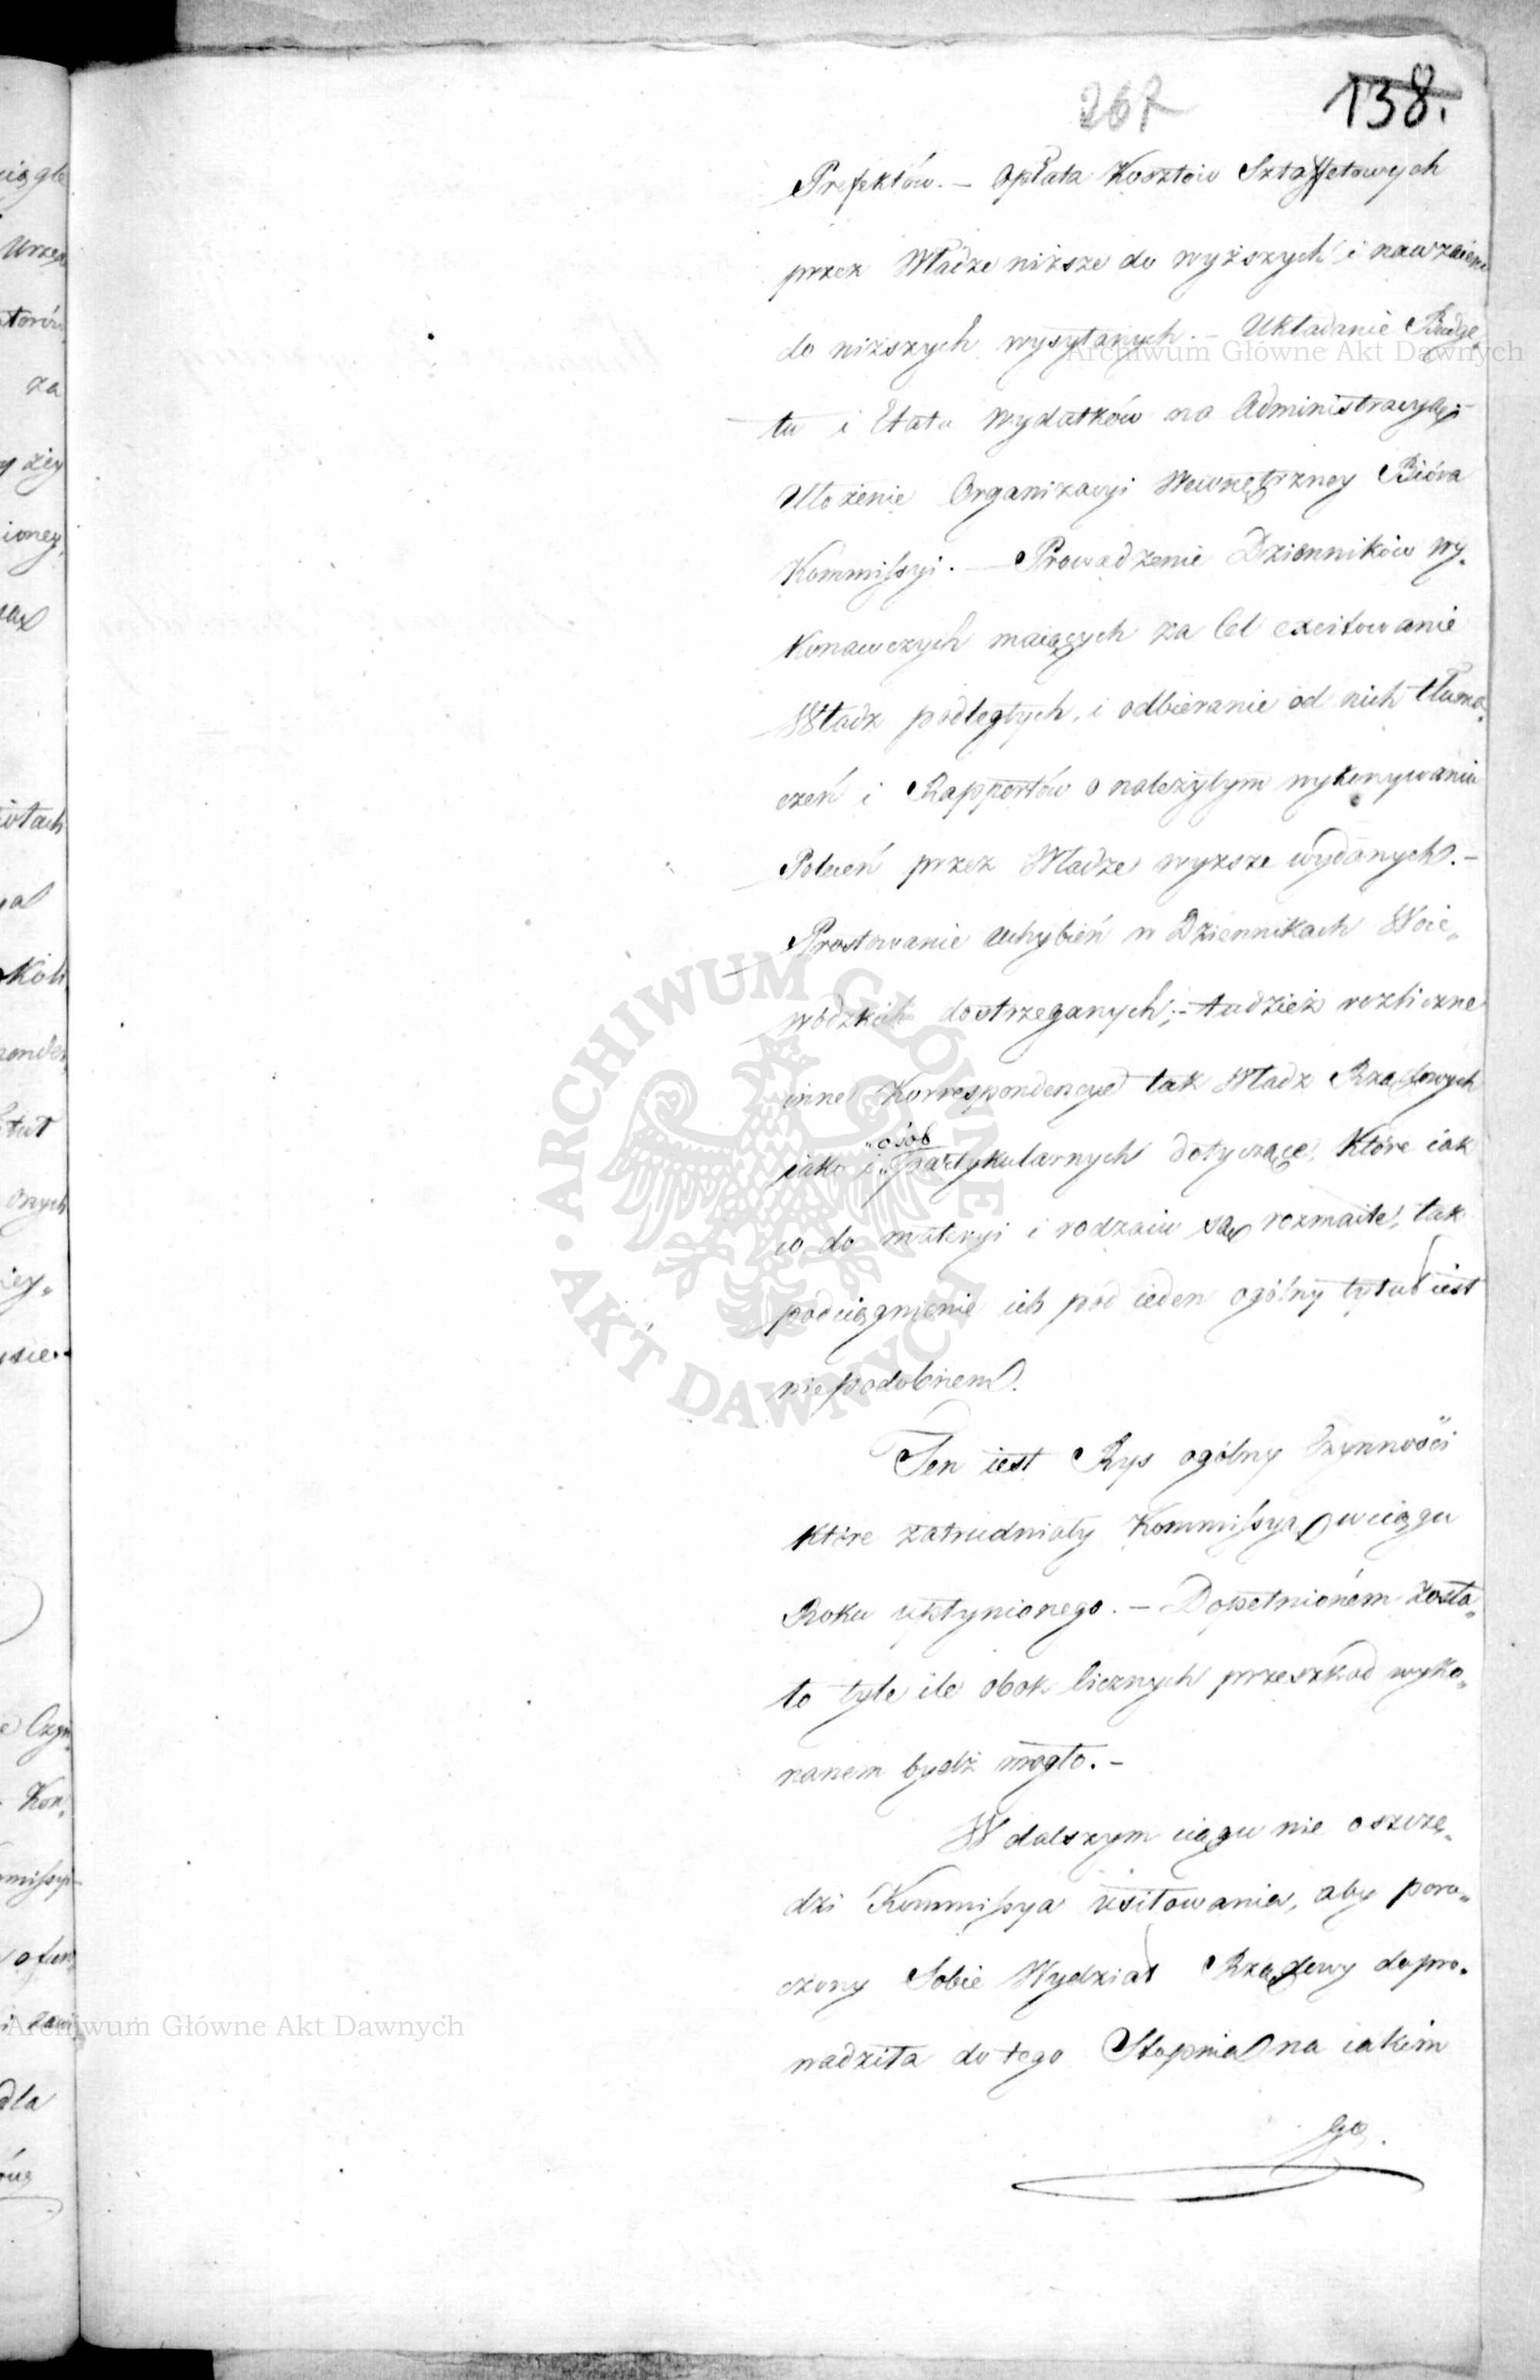 267
138.
Prefektów. – Opłata Kosztów Sztaffetowych
przez Władze niższe do wyższych i nawzaiem
do niższych wysyłanych. – Układanie Budge„
tu i Etatu Wydatków na Administracyią; –
Ułożenie Organizacyi Wewnętrzney Bióra
Kommissyi. – Prowadzenie Dzienników wy„
konawczych maiących za Cel excitowanie
Władz podległych, i odbieranie od nich tłuma„
czeń i Rapportów o należytym wykonywaniu
Poleceń przez Władze wyzsze wydanych. –
Prostowanie uchybień w Dziennikach Woie„
wódzkich dostrzeganych; – tudzież rozliczne
inne Korrespondencye tak Władz Rządowych
„osób
iako i „partykularnych dotyczące, Które iak
co do materyi i rodzaiu są rozmaite, tak
podciągnienie ich pod ieden ogólny tytuł iest
niepodobnem.
Ten iest Rys ogólny Czynności
które zatrudniały Kommissyą w ciągu
Roku upłynionego. – Dopełnioném zosta„
ło tyle ile obok licznych przeszkod wyko„
nanem bydź mogło. –
W dalszym ciągu nie oszczę„
dzi Kommissya usiłowania, aby poru„
czony Sobie Wydział Rządowy dopro„
wadziła do tego Stopnia na iakim
Go
Archiwum Główne Akt Dawnych
ARCHIWUM GŁÓWNE AKT DAWNYCH
Archiwum Główne Akt Dawnych